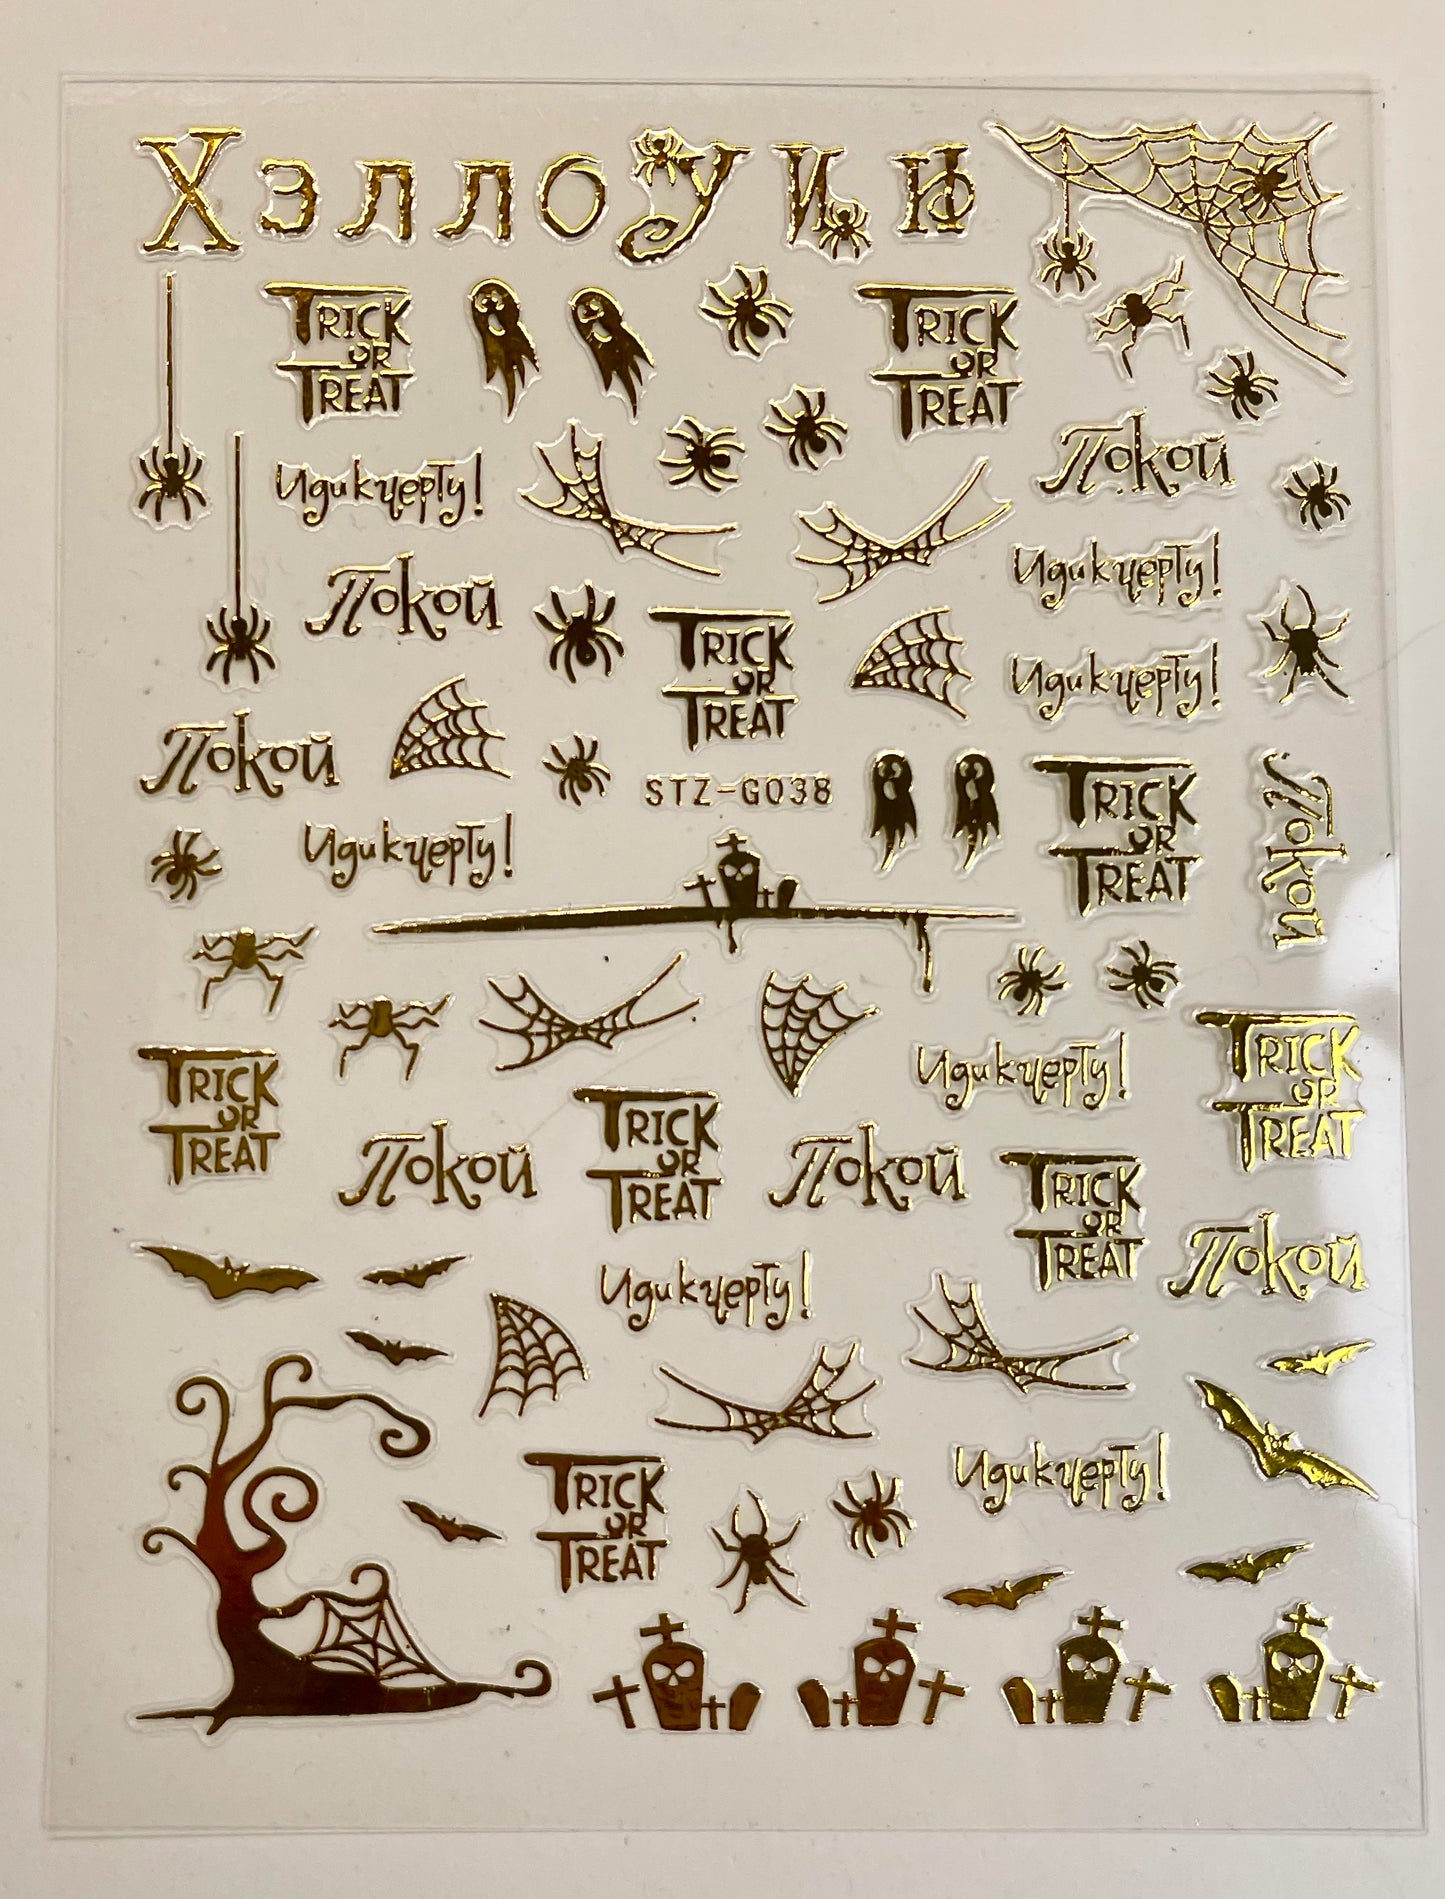 Хэллоуин
TRICK
OR
TREAT
TRICK
OR
TREAT
Покой
Иди к черту!
Иди к черту!
Покой
TRICK
OR
TREAT
Иди к черту!
Покой
STZ-G038
TRICK
OR
TREAT
Покой
Иди к черту!
Иди к черту!
TRICK
OR
TREAT
TRICK
OR
TREAT
Покой
TRICK
OR
TREAT
Покой
TRICK
OR
TREAT
Покой
Иди к черту!
Иди к черту!
TRICK
OR
TREAT